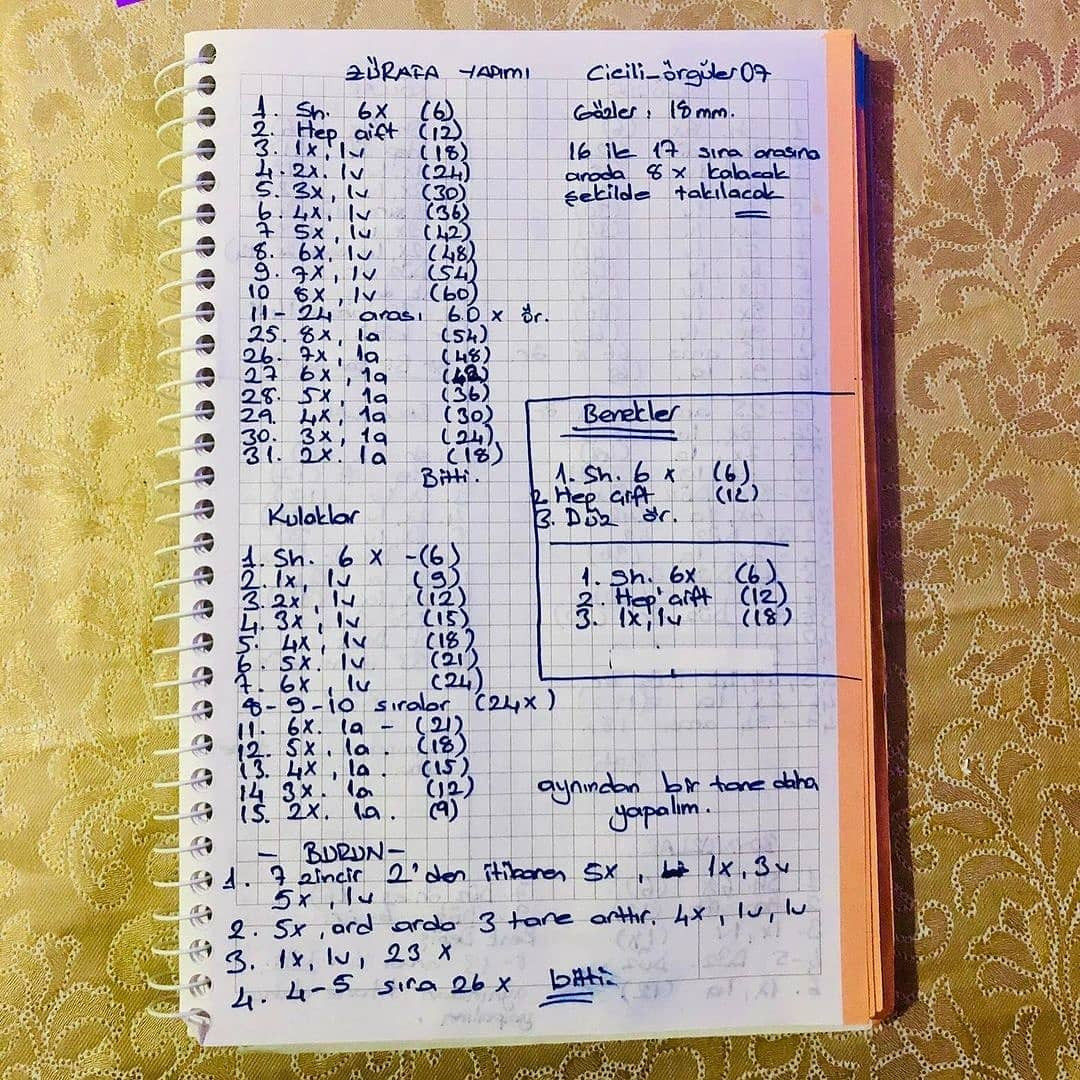 ZÜRAFA YAPIMI
Cicili_örgüler07
1. Sh. 6x (6)
2. Hep çift (12)
3. 1x, 1v (18)
4. 2x. 1v (24)
5. 3x, 1v (30)
6. 4x, 1v (36)
7 5x, 1v (42)
8. 6x, 1v (48)
9. 7x, 1v (54)
10 8x, 1v (60)
11- 24 arası 60 x ör.
25. 8x, 1a (54)
26. 7x, 1a (48)
27 6x, 1a (42)
28. 5x, 1a (36)
29. 4x, 1a (30)
30. 3x, 1a (24)
31. 2x. 1a (18)
Bitti.
Gözler, 18 mm.
16 ile 17 sıra arasına
arada 8 x kalacak
şekilde takılacak
Benekler
1. Sh. 6 x (6)
2. Hep çift (12)
3. Düz ör.
1. Sh. 6x (6)
2. Hep çift (12)
3. 1x, 1v (18)
Kulaklar
1. Sh. 6 x -(6)
2. 1x, 1v (9)
3. 2x, 1v (12)
4. 3x, 1v (15)
5. 4x, 1v (18)
6. 5x. 1v (21)
7. 6x, 1v (24)
8-9-10 sıralar (24x)
11. 6x. 1a - (21)
12. 5x, 1a. (18)
13. 4x, 1a. (15)
14 3x. 1a (12)
15. 2x. 1a. (9)
aynından bir tane daha
yapalım.
- BURUN -
1. 7 zincir 2'den itibaren 5x, 1x, 3v
5x, 1v
2. 5x, ard arda 3 tane arttır. 4x, 1v, 1v
3. 1x, 1v, 23 x
4. 4-5 sıra 26 x bitti.